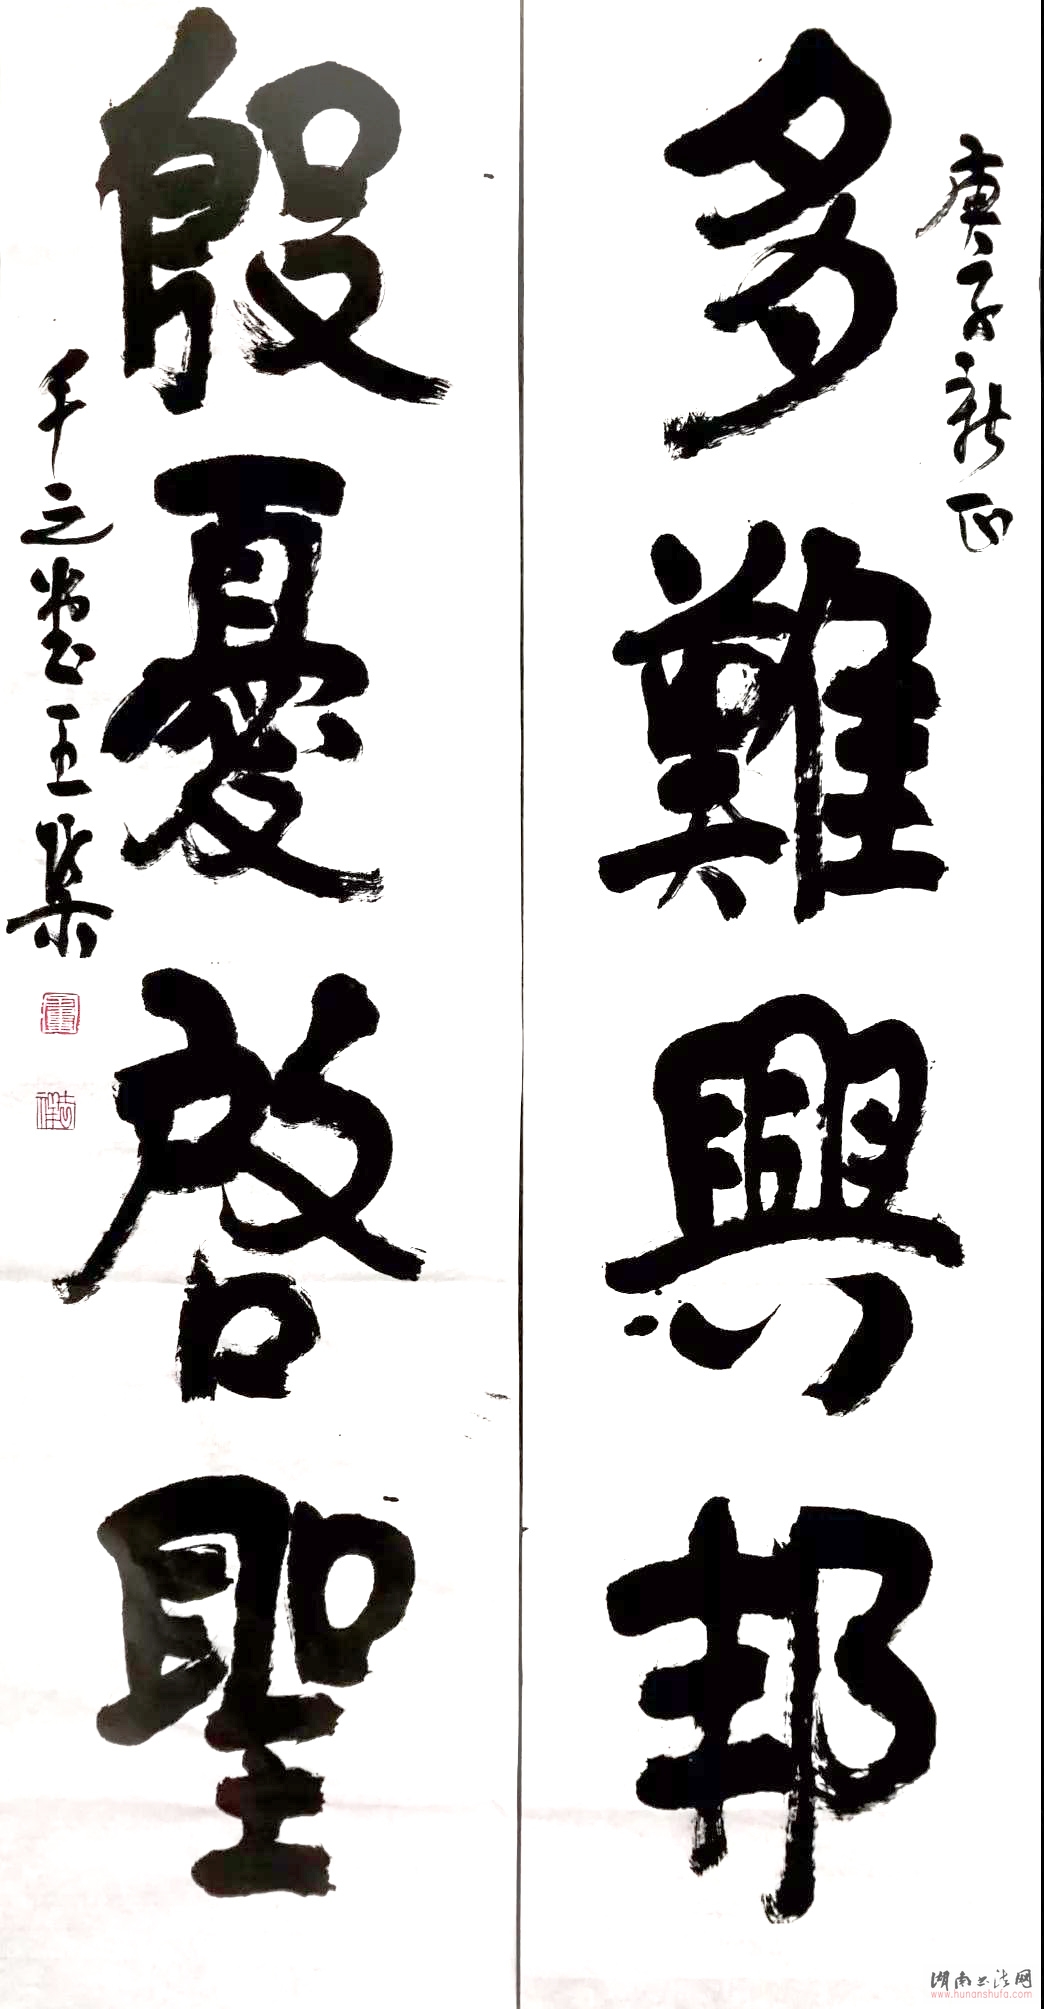 庚子新正
多難興邦
殷憂啓聖
千之堂王集
湖南书法网
www.hunanshufa.com